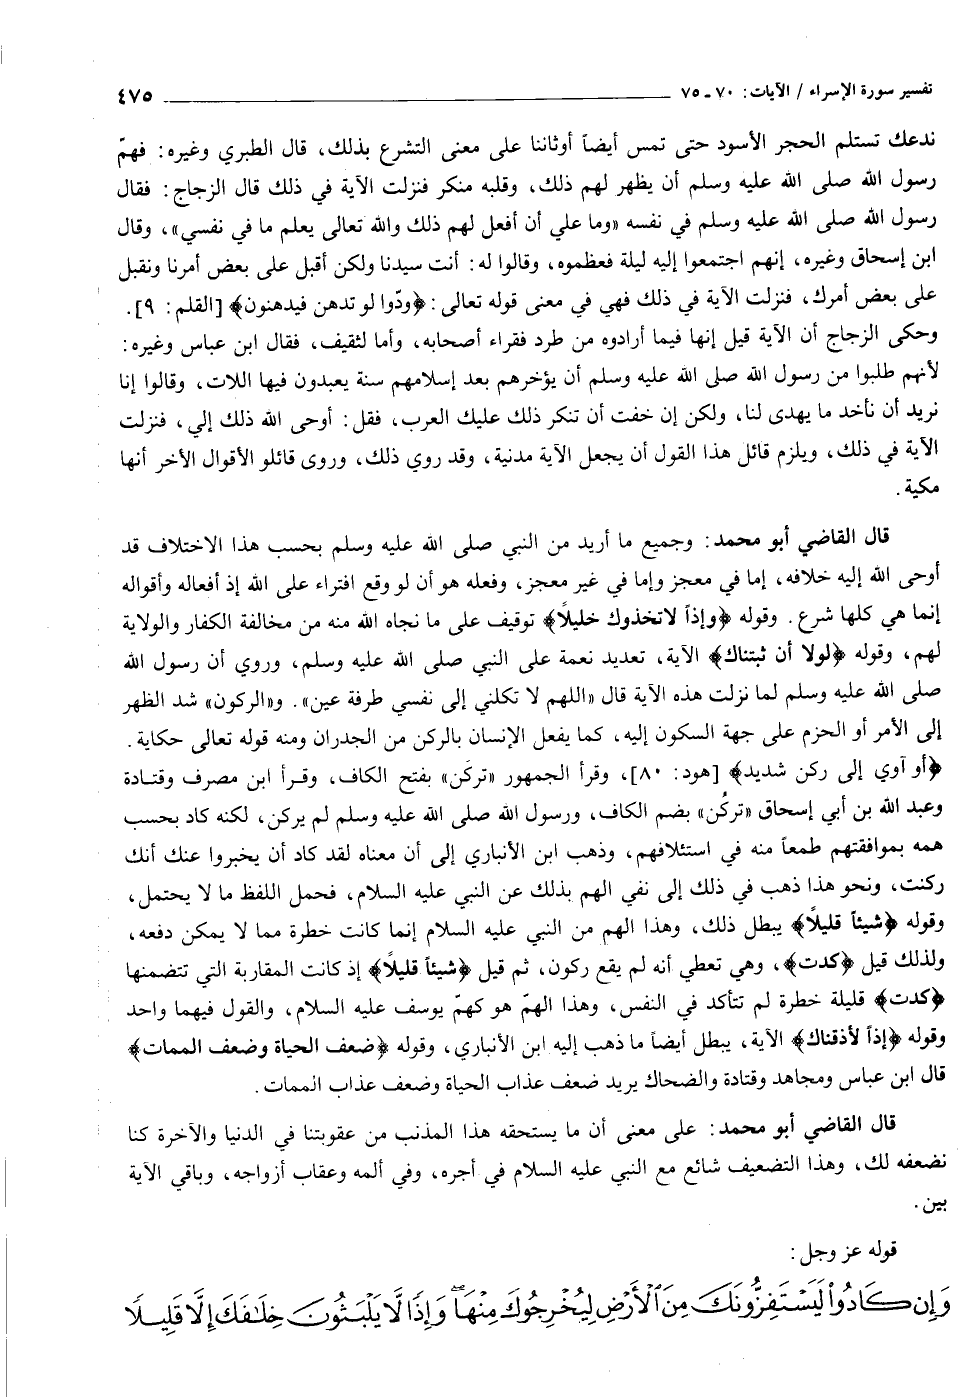 تفسير سورة الإسراء / الآيات: ٧٠ ـ ٧٥ ــــــــــ ٤٧٥
ندعك تستلم الحجر الأسود حتى تمس أيضاً أوثاننا على معنى التشرع بذلك، قال الطبري وغيره: فهمّ
رسول الله صلى الله عليه وسلم أن يظهر لهم ذلك، وقلبه منكر فنزلت الآية في ذلك قال الزجاج: فقال
رسول الله صلى الله عليه وسلم في نفسه «وما علي أن أفعل لهم ذلك والله تعالى يعلم ما في نفسي»، وقال
ابن إسحاق وغيره، إنهم اجتمعوا إليه ليلة فعظموه، وقالوا له: أنت سيدنا ولكن أقبل على بعض أمرنا ونقبل
على بعض أمرك، فنزلت الآية في ذلك فهي في معنى قوله تعالى: ﴿ودّوا لو تدهن فيدهنون﴾ [القلم: ٩].
وحكى الزجاج أن الآية قيل إنها فيما أرادوه من طرد فقراء أصحابه، وأما لثقيف، فقال ابن عباس وغيره:
لأنهم طلبوا من رسول الله صلى الله عليه وسلم أن يؤخرهم بعد إسلامهم سنة يعبدون فيها اللات، وقالوا إنا
نريد أن نأخد ما يهدى لنا، ولكن إن خفت أن تنكر ذلك عليك العرب، فقل: أوحى الله ذلك إلي، فنزلت
الآية في ذلك، ويلزم قائل هذا القول أن يجعل الآية مدنية، وقد روي ذلك، وروى قائلو الأقوال الأخر أنها
مكية.
قال القاضي أبو محمد: وجميع ما أريد من النبي صلى الله عليه وسلم بحسب هذا الاختلاف قد
أوحى الله إليه خلافه، إما في معجز وإما في غير معجز، وفعله هو أن لو وقع افتراء على الله إذ أفعاله وأقواله
إنما هي كلها شرع. وقوله ﴿وإذاً لاتخذوك خليلاً﴾ توقيف على ما نجاه الله منه من مخالفة الكفار والولاية
لهم، وقوله ﴿لولا أن ثبتناك﴾ الآية، تعديد نعمة على النبي صلى الله عليه وسلم، وروي أن رسول الله
صلى الله عليه وسلم لما نزلت هذه الآية قال «اللهم لا تكلني إلى نفسي طرفة عين». و«الركون» شد الظهر
إلى الأمر أو الحزم على جهة السكون إليه، كما يفعل الإنسان بالركن من الجدران ومنه قوله تعالى حكاية.
﴿أو آوي إلى ركن شديد﴾ [هود: ٨٠]، وقرأ الجمهور «تركَن» بفتح الكاف، وقرأ ابن مصرف وقتادة
وعبد الله بن أبي إسحاق «تركُن» بضم الكاف، ورسول الله صلى الله عليه وسلم لم يركن، لكنه كاد بحسب
همه بموافقتهم طمعاً منه في استئلافهم، وذهب ابن الأنباري إلى أن معناه لقد كاد أن يخبروا عنك أنك
ركنت، ونحو هذا ذهب في ذلك إلى نفي الهم بذلك عن النبي عليه السلام، فحمل اللفظ ما لا يحتمل،
وقوله ﴿شيئاً قليلاً﴾ يبطل ذلك، وهذا الهم من النبي عليه السلام إنما كانت خطرة مما لا يمكن دفعه،
ولذلك قيل ﴿كدت﴾، وهي تعطي أنه لم يقع ركون، ثم قيل ﴿شيئاً قليلاً﴾ إذ كانت المقاربة التي تتضمنها
﴿كدت﴾ قليلة خطرة لم تتأكد في النفس، وهذا الهمّ هو كهمّ يوسف عليه السلام، والقول فيهما واحد
وقوله ﴿إذاً لأذقناك﴾ الآية، يبطل أيضاً ما ذهب إليه ابن الأنباري، وقوله ﴿ضعف الحياة وضعف الممات﴾
قال ابن عباس ومجاهد وقتادة والضحاك يريد ضعف عذاب الحياة وضعف عذاب الممات.
قال القاضي أبو محمد: على معنى أن ما يستحقه هذا المذنب من عقوبتنا في الدنيا والآخرة كنا
نضعفه لك، وهذا التضعيف شائع مع النبي عليه السلام في أجره، وفي ألمه وعقاب أزواجه، وباقي الآية
بين.
قوله عز وجل:
وَإِن كَادُوا۟ لَيَسْتَفِزُّونَكَ مِنَ ٱلْأَرْضِ لِيُخْرِجُوكَ مِنْهَا ۖ وَإِذًا لَّا يَلْبَثُونَ خِلَٰفَكَ إِلَّا قَلِيلًا